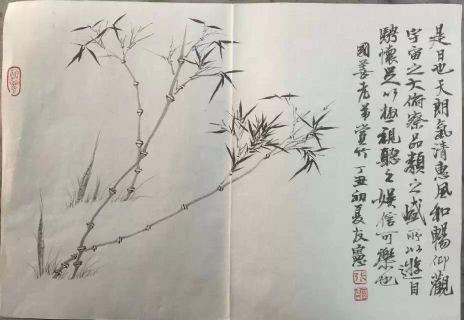 是日也天朗氣清惠風和暢仰觀
宇宙之大俯察品類之盛所以遊目
騁懷足以極視聽之娛信可樂也
國善老弟賞竹丁丑初夏友憲